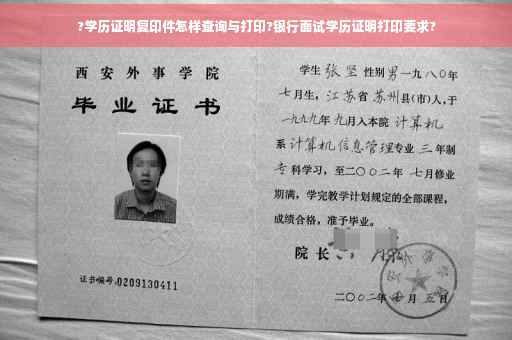 ?学历证明复印件怎样查询与打印?银行面试学历证明打印要求?
西安外事学院
毕业证书
证书编号:0209130411
学生 张坚 性别男一九八〇年
七月生,江苏省 苏州县(市)人,于
一九九九年 九月入本院 计算机
系 计算机信息管理专业 三 年制
专 科学习,至二〇〇二年 七月修业
期满,学完教学计划规定的全部课程,
成绩合格,准予毕业。
院长
二〇〇二年 月 五日